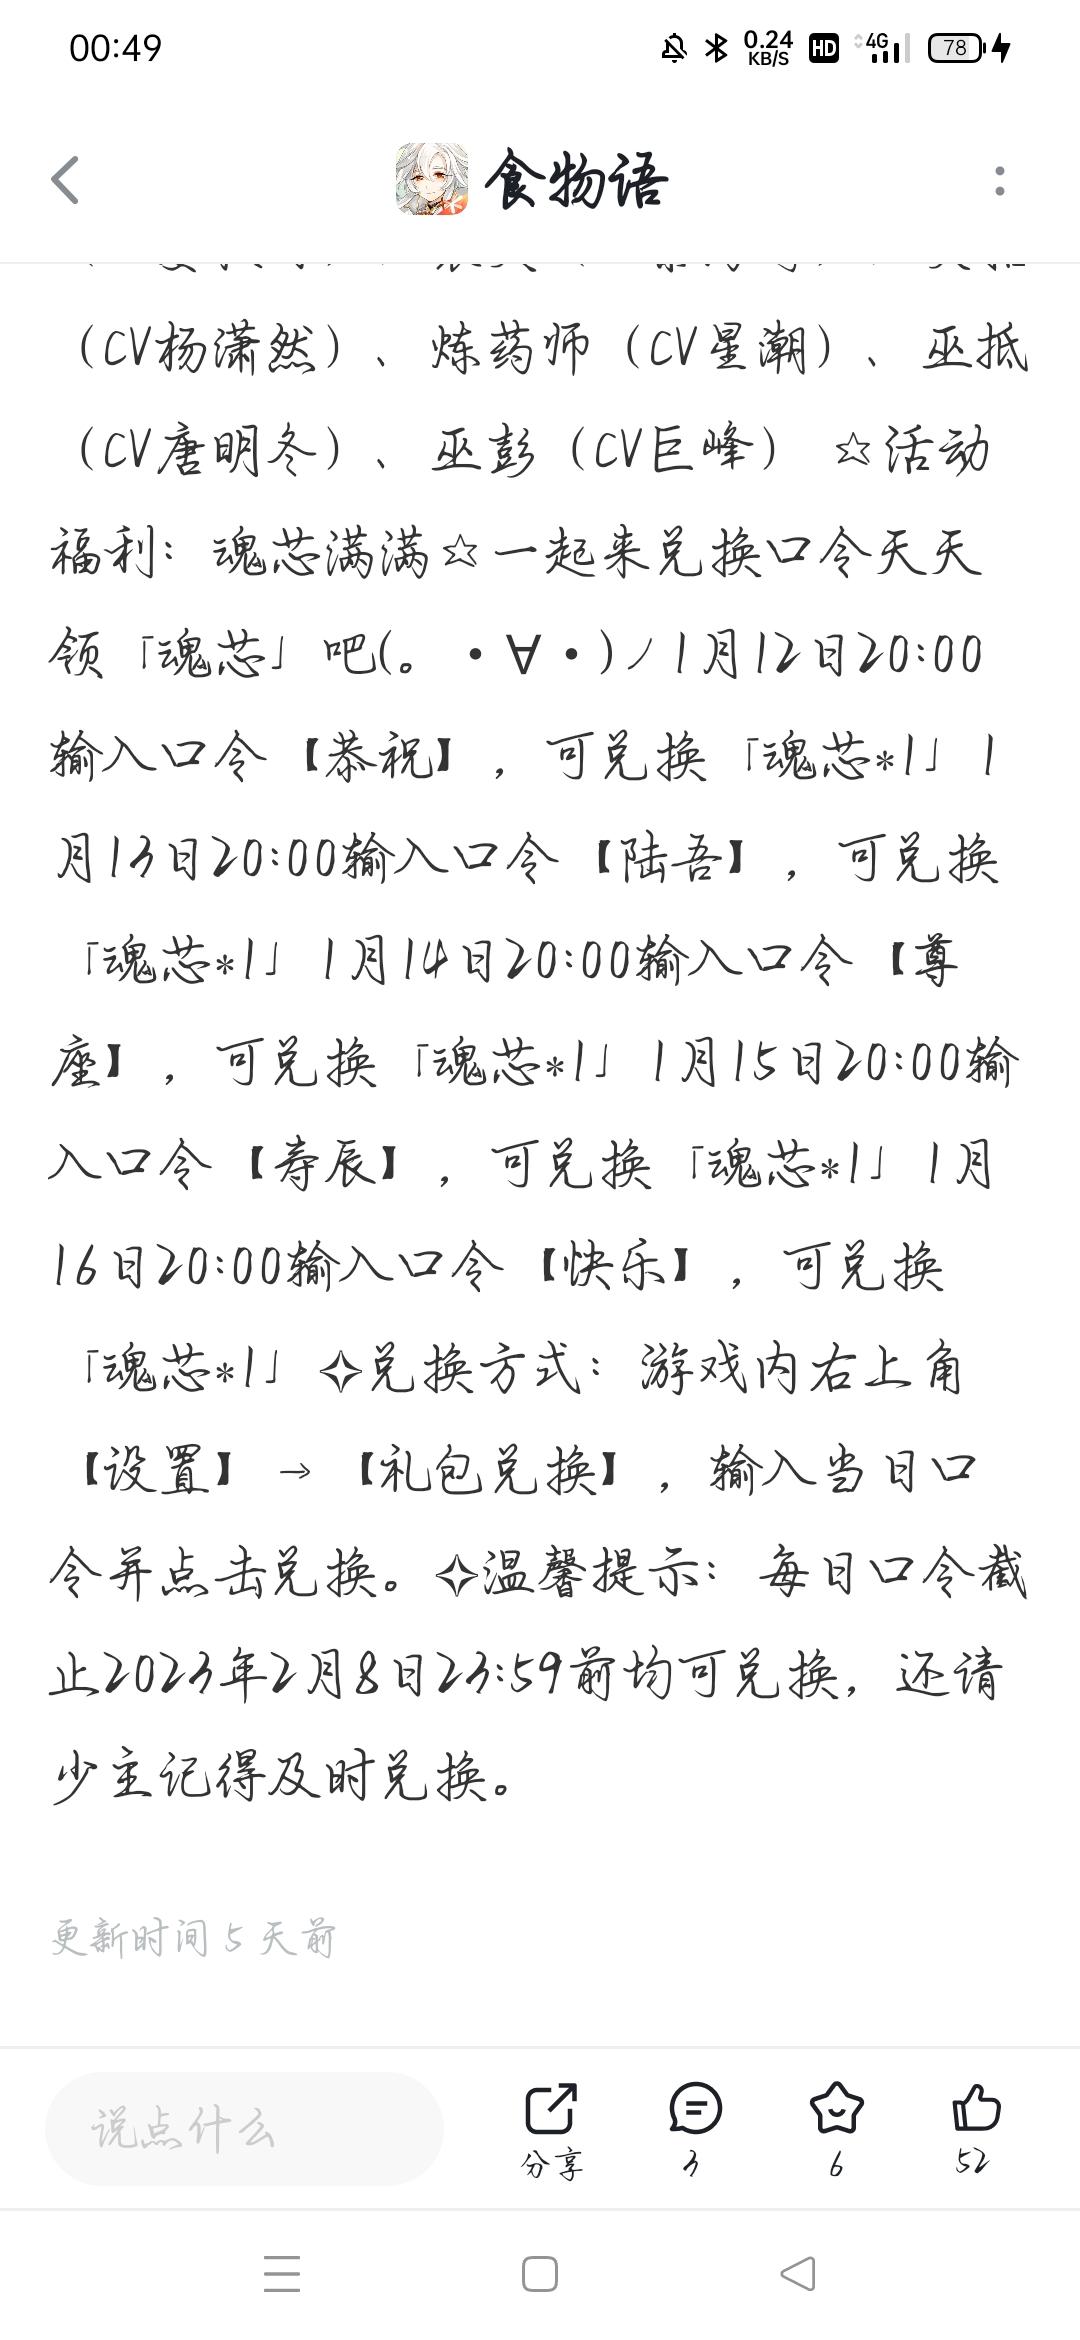 00:49
0.24 KB/S HD 4G 78
食物语
（CV杨潇然）、炼药师（CV星潮）、巫抵
（CV唐明冬）、巫彭（CV巨峰） ☆活动
福利：魂芯满满☆一起来兑换口令天天
领「魂芯」吧(。・∀・)ノ1月12日20:00
输入口令【恭祝】，可兑换「魂芯*1」1
月13日20:00输入口令【陆吾】，可兑换
「魂芯*1」1月14日20:00输入口令【尊
座】，可兑换「魂芯*1」1月15日20:00输
入口令【寿辰】，可兑换「魂芯*1」1月
16日20:00输入口令【快乐】，可兑换
「魂芯*1」✧兑换方式：游戏内右上角
【设置】→【礼包兑换】，输入当日口
令并点击兑换。✧温馨提示：每日口令截
止2023年2月8日23:59前均可兑换，还请
少主记得及时兑换。
更新时间 5 天前
说点什么
分享 3 6 52